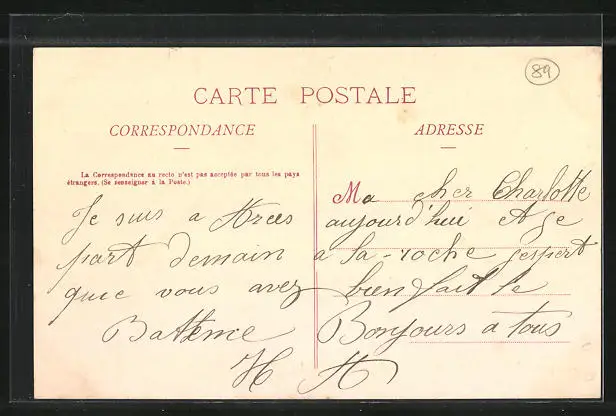 89
CARTE POSTALE
CORRESPONDANCE
ADRESSE
La Correspondance au recto n'est pas acceptée par tous les pays
étrangers. (Se renseigner à la Poste.)
Ma cher Charlotte
Je suis a aujourd'hui et Je
part demain a la-roche jespert
quue vous avez bien fait le
Bateme Bonjours a tous
H H